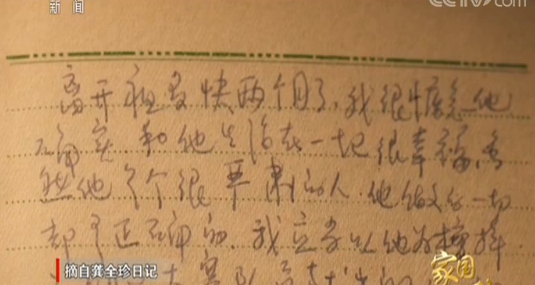 新闻
CCTV.com
离开祖昌快两个月了,我很惦念他
确实和他生活在一起很幸福,虽
然他是个很严肃的人,他做的一切
都是正确的,我应当以他为榜样
摘自龚全珍日记
家国